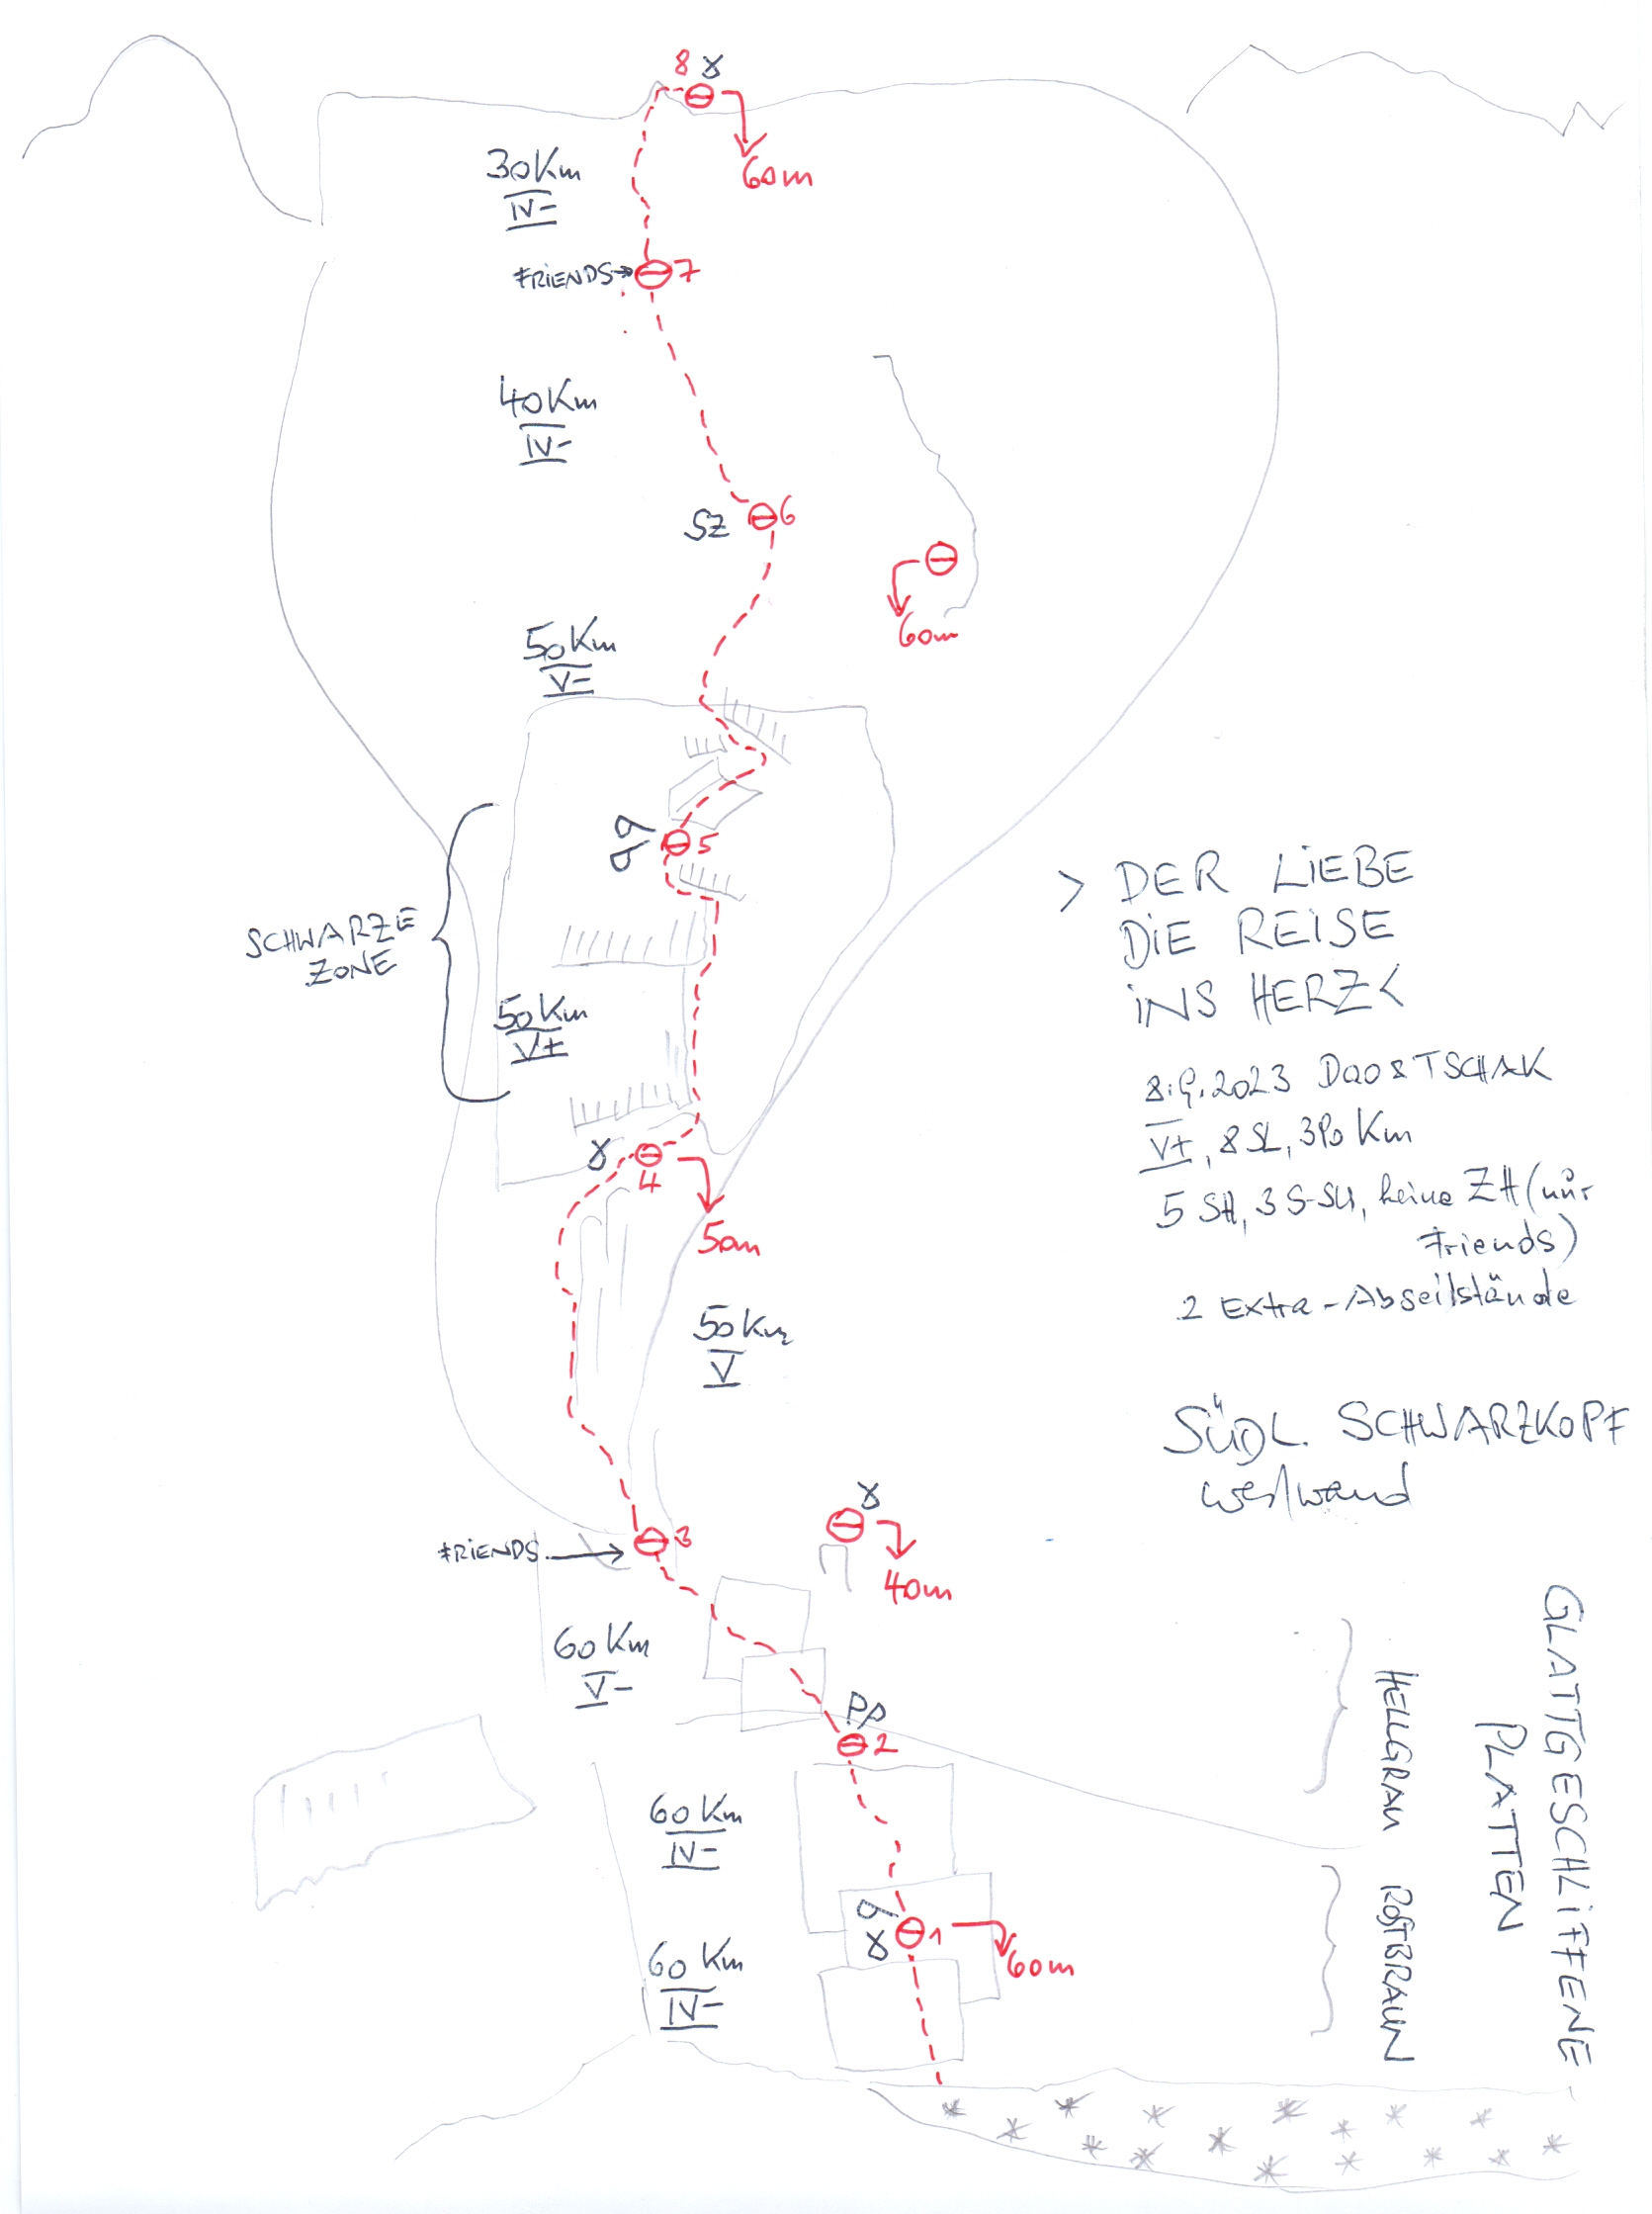 8
60m
30Km
IV-
FRIENDS
7
40Km
IV-
SZ
6
60m
50Km
V-
5
SCHWARZE
ZONE
50Km
V+
4
50m
50Km
V
> DER LIEBE
DIE REISE
INS HERZ <
8.9.2023 DOO & TSCHAK
V+, 8 SL, 390 Km
5 SH, 3 S-SU, keine ZH (nur
Friends)
2 Extra-Abseilstände
SÜDL. SCHWARZKOPF
Westwand
FRIENDS
3
40m
60Km
V-
PP
2
60Km
IV-
1
60m
60Km
IV-
HELLGRAU
ROSTBRAUN
GLATTGESCHLIFFENE
PLATTEN